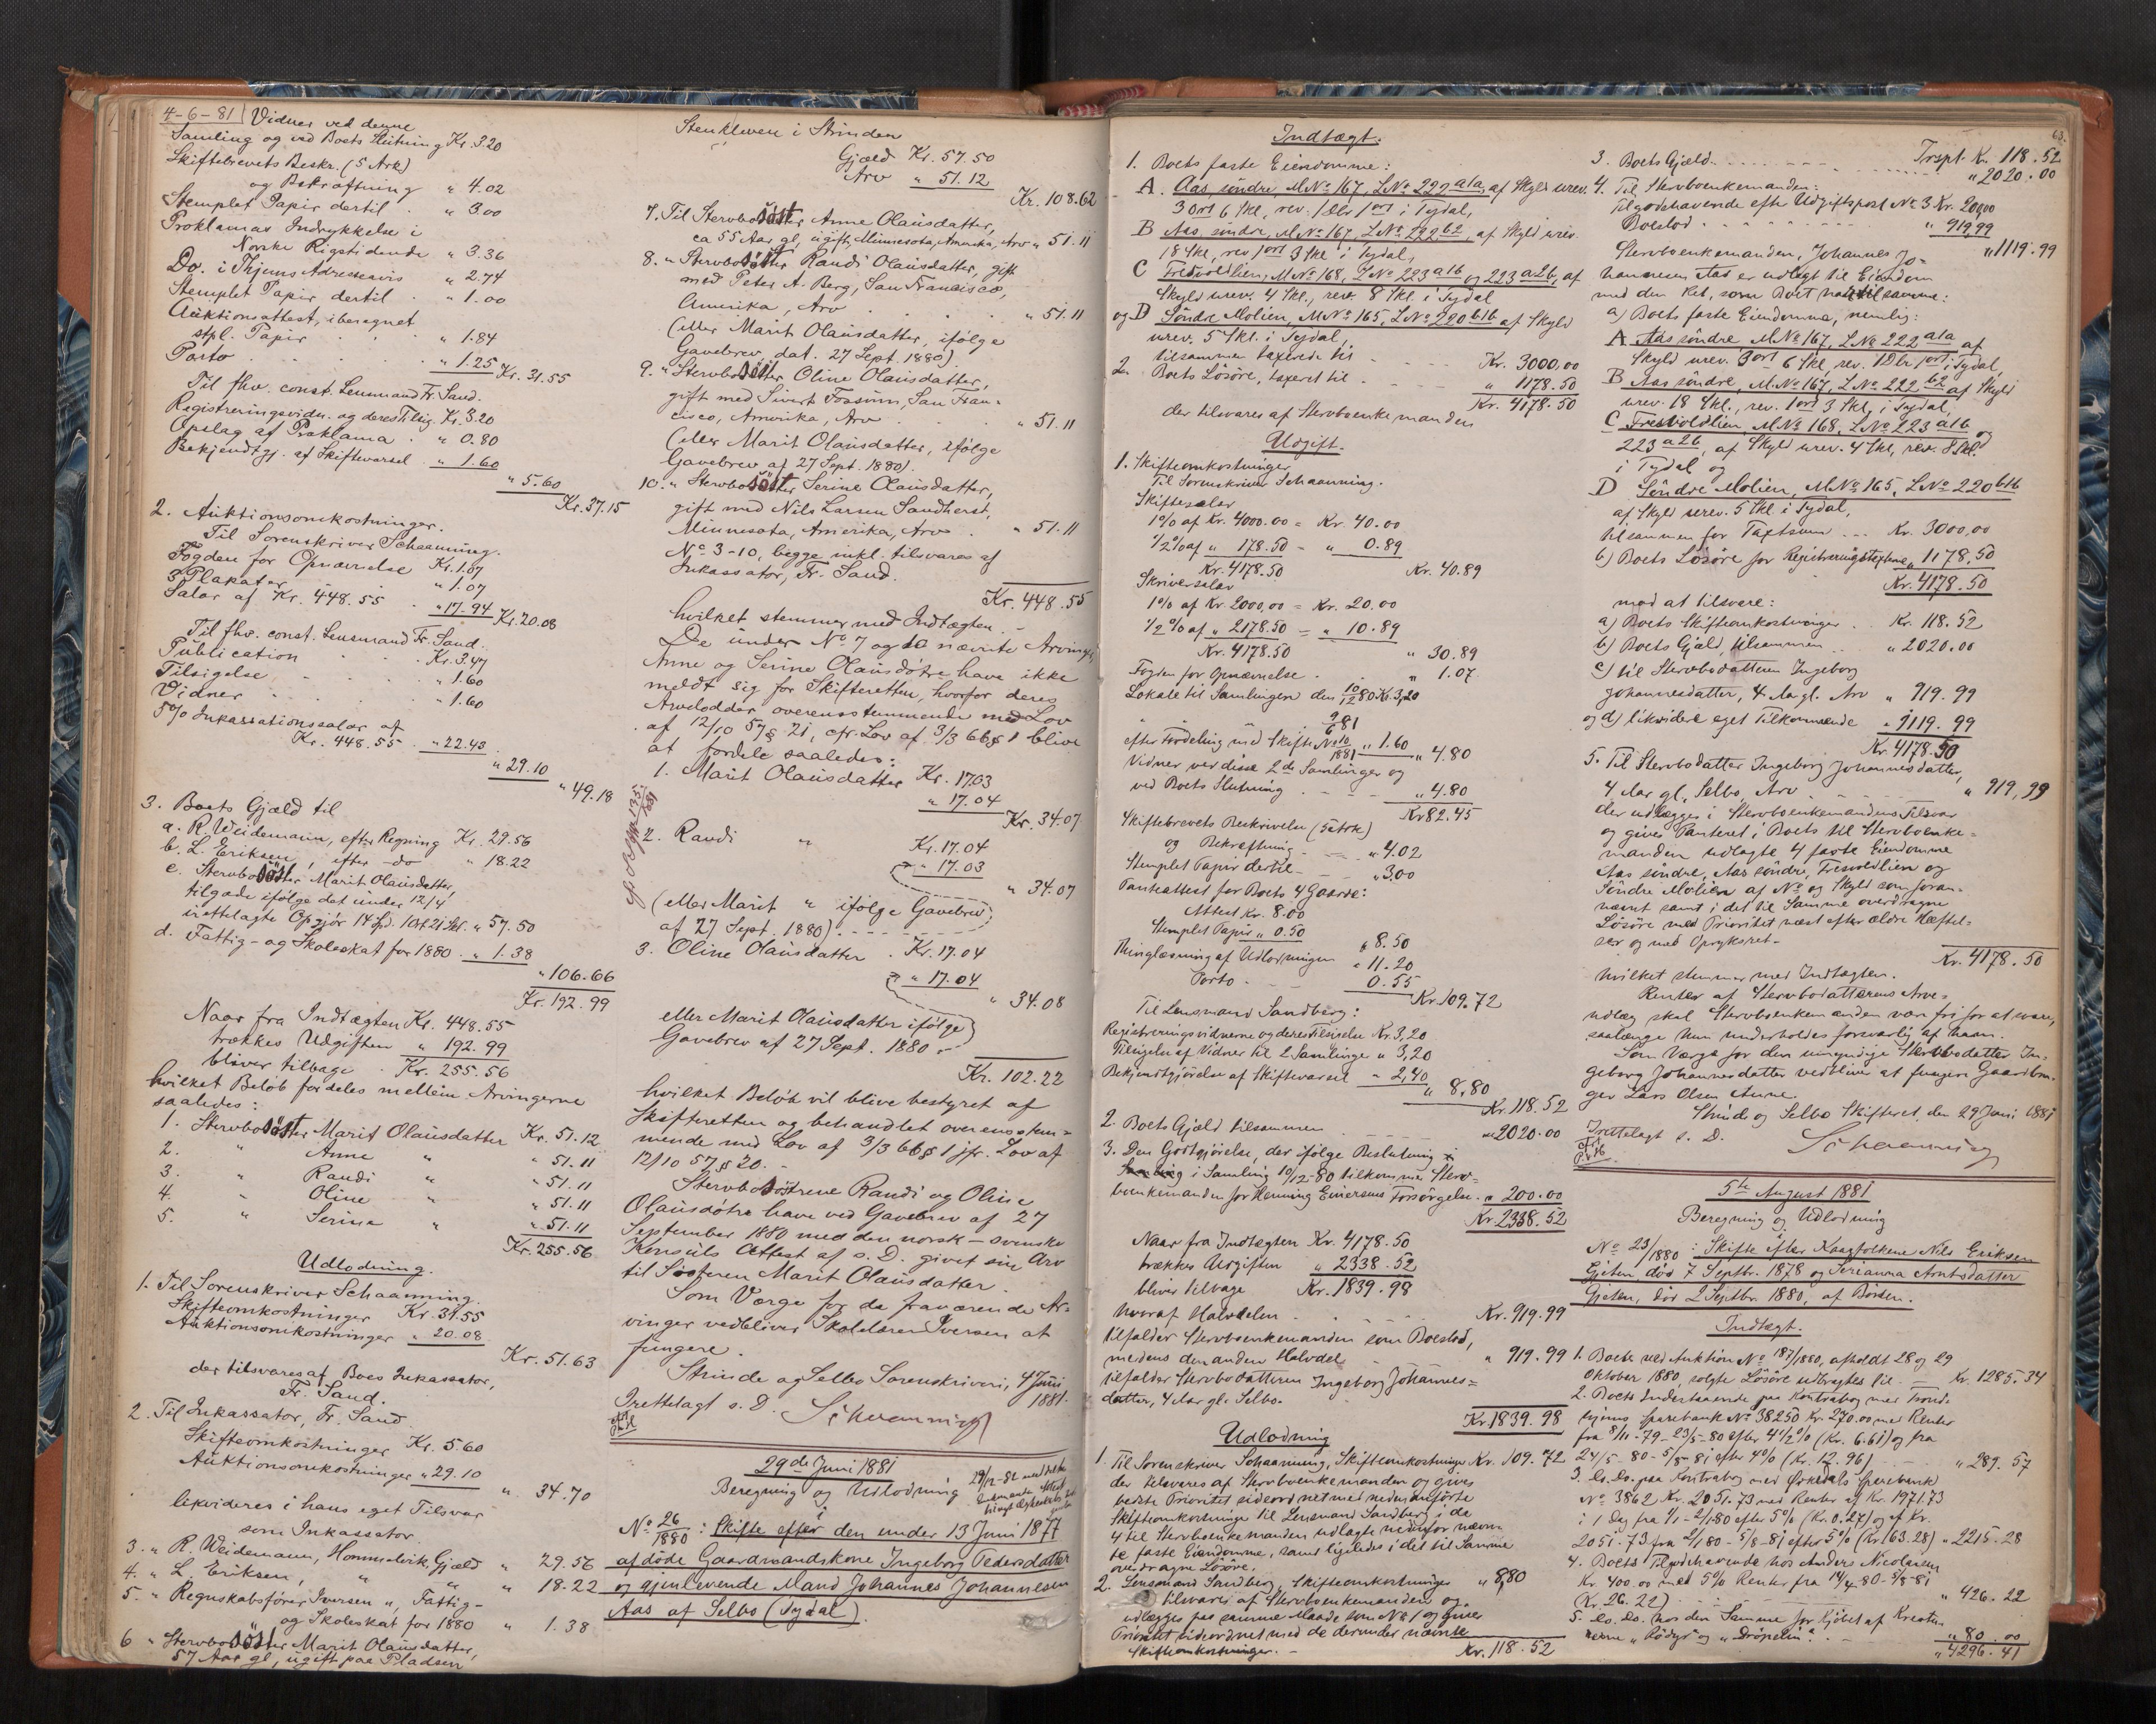 4-6-81 Vidner ved denne
Samling og ved Boets Slutning Kr. 3.20
Skiftebrevets Beskr. (5 Ark)
og Bekræftning " 4.02
Stemplet Papir dertil . " 3.00
Proklamas Indrykkelse i
Norske Rigstidende " 3.36
Do. i Thjems Adresseavis " 2.74
Stemplet Papir dertil . " 1.00
Auktionsattest, iberegnet
stpl. Papir . . " 1.84
Porto . . . . " 1.25 Kr. 31.55
Til fhv. const. Lensmand Fr. Sand.
Registreringsvidn. og deres Tilsig. Kr. 3.20
Opslag af Proklama . " 0.80
Bekjendtgj. af Skiftevarsel . " 1.60
" 5.60
Kr. 37.15
2. Auktionsomkostninger.
Til Sorenskriver Schaanning.
Fogden for Opnævnelse Kr. 1.07
3 Plakater " 1.07
Salær af Kr. 448.55 . " 17.94 Kr. 20.08
Til fhv. const. Lensmand Fr. Sand.
Publication . . . Kr. 3.47
Tilsigelse . . . " 1.60
Vidner . . . " 1.60
5% Inkassationssalær af
Kr. 448.55 . " 22.43
" 29.10
" 49.18
3. Boets Gjæld til
a. R. Weidemann, efter Regning Kr. 29.56
b. L. Eriksen, efter do " 18.22
c. Stervbosöster Marit Olausdatter,
tilgode ifölge det under 12/4
irettelagte Opgjör 14 Spd. 1 Ort 21 Sk. " 57.50
d. Fattig- og Skoleskat for 1880 . " 1.38
" 106.66
Kr. 192.99
Naar fra Indtægten Kr. 448.55
trækkes Udgiften " 192.99
bliver tilbage . Kr. 255.56
hvilket Belöb fordeles mellem Arvingerne
saaledes:
1. Stervbosöster Marit Olausdatter Kr. 51.12
2. " Anne " " 51.11
3. " Randi " " 51.11
4. " Oline " " 51.11
5. " Serine " " 51.11
Kr. 255.56
Udlodning.
1. Til Sorenskriver Schaanning.
Skifteomkostninger Kr. 31.55
Auktionsomkostninger " 20.08
Kr. 51.63
der tilsvares af Boets Inkassator,
Fr. Sand.
2. Til Inkassator, Fr. Sand.
Skifteomkostninger Kr. 5.60
Auktionsomkostninger " 29.10
" 34.70
likvideres i hans eget Tilsvar
som Inkassator
3. " R. Weidemann, Hommelvik, Gjæld " 29.56
4. " L. Eriksen, " " " 18.22
5. " Regnskabsförer Iversen ", Fattig-
og Skoleskat for 1880 " 1.38
6 " Stervbosöster Marit Olausdatter,
57 Aar gl, ugift paa Pladsen
Stenkleven i Strinden
Gjæld Kr. 57.50
Arv " 51.12
Kr. 108.62
7. Til Stervbosöster Anne Olausdatter,
ca 55 Aar gl, ugift, Minnesota, Amerika, Arv " 51.11
8. " Stervbosöster Randi Olausdatter, gift
med Peter A. Berg, San Francisco,
Amerika, Arv . . . . " 51.11
(eller Marit Olausdatter, ifölge
Gavebrev, dat. 27 Sept. 1880).
9. " Stervbosöster Oline Olausdatter,
gift med Sivert Fossum, San Fran-
cisco, Amerika, Arv . . . " 51.11
(eller Marit Olausdatter, ifölge
Gavebrev af 27 Sept. 1880).
10. " Stervbosöster Serine Olausdatter,
gift med Nils Larsen Sandherst,
Minnesota, Amerika, Arv . " 51.11
No 3-10, begge inkl. tilsvares af
Inkassator, Fr. Sand.
Kr. 448.55
hvilket stemmer med Indtægten. -
De under No 7 og 10 nævnte Arvinger
Anne og Serine Olausdötre have ikke
meldt sig for Skifteretten, hvorfor deres
Arvelodder overensstemmende med Lov
af 12/10 57 § 21, cfr. Lov af 3/3 66 § 1 blive
at fordele saaledes:
1. Marit Olausdatter Kr. 17.03
" 17.04
Kr. 34.07
2. Randi " Kr. 17.04
" 17.03
" 34.07
(eller Marit " ifölge Gavebrev
af 27 Sept. 1880).
3. Oline Olausdatter . Kr. 17.04
" 17.04
" 34.08
eller Marit Olausdatter ifölge
Gavebrev af 27 Sept. 1880.
Kr. 102.22
hvilket Belöb vil blive bestyret af
Skifteretten og behandlet overensstem-
mende med Lov af 3/3 66 § 1 jfr. Lov af
12/10 57 § 20. -
Stervbosöstrene Randi og Oline
Olausdötre have ved Gavebrev af 27
September 1880 med den norsk-svenske
Konsuls Attest af s. D. givet sin Arv
til Sösteren Marit Olausdatter.
Som Værge for de fraværende Ar-
vinger vedbliver Skolelærer Iversen at
fungere.
Strinde og Selbo Sorenskriveri, 4 Juni
1881.
Irettelagt s. D. Schaanning
29de Juni 1881
Beregning og Udlodning
i
No 26/1880: Skifte efter den under 13 Juni 1877
afdöde Gaardmandskone Ingeborg Pedersdatter
og gjenlevende Mand Johannes Johannesen
Aas af Selbo (Tydal).
63.
Indtægt.
1. Boets faste Eiendomme:
A. Aas söndre, M No 167, L No 222 a1a, af Skyld urev.
3 ort 6 Skl, rev. 1 Dlr 1 ort i Tydal,
B Aas söndre, M No 167, L No 222 b2, af Skyld urev.
18 Skl, rev 1 ort 3 Skl i Tydal,
C Fresvoldlien, M No 168, L No 223 a1b og 223 a2b, af
Skyld urev. 4 Skl., rev. 8 Skl. i Tydal
og D Söndre Molien, M No 165, L No 220 b1b af Skyld
urev. 5 Skl. i Tydal,
tilsammen taxerede til . . . Kr. 3000,00
2. Boets Lösöre, taxeret til . . . " 1178.50
Kr. 4178.50
der tilsvares af Stervboenkemanden
Udgift.
1. Skifteomkostninger
Til Sorenskriver Schaanning.
Skiftesalær
1% af Kr. 4000.00 = Kr. 40.00
1/2% af " 178.50 = " 0.89
Kr. 4178.50 Kr. 40.89
Skriversalær
1% af Kr. 2000,00 = Kr. 20.00
1/2% af " 2178.50 = " 10.89
Kr. 4178.50 " 30.89
Fogden for Opnævnelse . " 1.07
Lokale til Samlingen den 10/12 80 Kr. 3,20
" 9/6 81
efter Fordeling med Skifte No 10/1881 " 1.60 " 4.80
Vidner ved disse 2de Samlinger og
ved Boets Slutning . . . " 4.80
Kr 82.45
Skiftebrevets Beskrivelse (5 Ark)
og Bekræftning . . " 4.02
Stemplet Papir dertil . . " 3,00
Panteattest for Boets 4 Gaarde:
Attest Kr. 8.00
Stemplet Papir " 0.50
" 8.50
Thinglæsning af Udlodningen " 11.20
Porto . . . 0.55
Kr. 109.72
Til Lensmand Sandberg:
Registreringsvidnerne og deres Tilsigelse Kr. 3,20
Tilsigelse af Vidner til 2 Samlinger " 3,20
Bekjendtgjörelse af Skiftevarsel " 2,40
" 8,80
Kr. 118.52
2. Boets Gjæld tilsammen . . . " 2020.00
3. Den Godtgjörelse, der ifölge Beslutning
i Samling 10/12-80 tilkommer Sterv-
boenkemanden for Henning Einersens Forsörgelse . " 200.00
Kr. 2338.52
Naar fra Indtægten Kr. 4178.50
trækkes Udgiften " 2338.52
bliver tilbage Kr. 1839.98
hvoraf Halvdelen . . . . Kr. 919.99
tilfalder Stervboenkemanden som Boeslod,
medens den anden Halvdel . . . " 919.99
tilfalder Stervbodatteren Ingeborg Johannes-
datter, 4 Aar gl. Selbo.
Kr. 1839.98
Udlodning
1. Til Sorenskriver Schaanning, Skifteomkostninger Kr. 109.72
der tilsvares af Stervboenkemanden og gives
bedste Prioritet sideordnet med nedenanförte
Skifteomkostninger til Lensmand Sandberg i de
4 til Stervboenkemanden udlagte nedenfor nævn-
te faste Eiendomme, samt ligeledes i det til Samme
overdragne Lösöre.
2. Lensmand Sandberg, Skifteomkostninger " 8,80
tilsvares af Stervboenkemanden og
udlægges paa samme Maade som No 1 og gives
Prioritet sideordnet med de derunder nævnte
Skifteomkostninger. - Kr. 118.52
Trspt. Kr. 118.52
3. Boets Gjæld . . . . " 2020.00
4. Til Stervboenkemanden:
Tilgodehavende efter Udgiftspost No 3 Kr. 200,00
Boeslod . . . . " 919,99
" 1119.99
Stervboenkemanden, Johannes Jo-
hannesen Aas er udlagt til Eiendom
med den Ret, som Boet har til samme:
a) Boets faste Eiendomme, nemlig:
A. Aas söndre M No 167, L No 222 a1a af
Skyld urev. 3 ort 6 Skl, rev. 1 Dlr. 1 ort i Tydal,
B Aas söndre, M No 167, L No 222 b2 af Skyld
urev. 18 Skl., rev. 1 ort 3 Skl. i Tydal,
C Fresvoldlien, M No 168, L No 223 a1b og
223 a2b, af Skyld urev. 4 Skl, rev. 8 Skl.
i Tydal og
D Söndre Molien, M No 165, L No 220 b1b
af Skyld urev. 5 Skl i Tydal,
tilsammen for Taxtsum . . . Kr. 3000,00
b) Boets Lösöre for Registreringstaxterne " 1178.50
Kr. 4178.50
mod at tilsvare:
a) Boets Skifteomkostninger . Kr. 118.52
b) Boets Gjæld, tilsammen . . " 2020.00
c) til Stervbodatteren Ingeborg
Johannesdatter, 4 Aar gl. Arv " 919.99
og d) likvidere eget Tilkommende " 1119.99
Kr. 4178.50
5. Til Stervbodatter Ingeborg Johannesdatter,
4 Aar gl., Selbo, Arv . . . . " 919,99
der udlægges i Stervboenkemandens Tilsvar
og gives Panteret i Boets til Stervboenke-
manden udlagte 4 faste Eiendomme
Aas söndre, Aas söndre, Fresvoldlien og
Söndre Molien af No og Skyld som foran-
nævnt samt i det til Samme overdragne
Lösöre med Prioritet næst efter ældre Hæftel-
ser og med Opryksret.
Kr. 4178.50
hvilket stemmer med Indtægten.
Renter af Stervbodatterens Arve-
udlæg skal Stervboenkemanden være fri for at svare,
saalænge hun underholdes forsvarlig af ham.
Som Værge for den umyndige Stervbodatter In-
geborg Johannesdatter vedbliver at fungere Gaardbru-
ger Lars Olsen Aune.
Strinde og Selbo Skifteret, den 29 Juni 1881
Irettelagt s. D. Schaanning
5te August 1881
Beregning og Udlodning
i
No 23/1880: Skifte efter Kaagfolkene Nils Eriksen
Gjeten död 7 Septbr. 1878 og Serianna Arntsdatter
Gjeten, död 2 Septbr. 1880, af Börsen.
Indtægt.
1. Boets ved Auktion No 187/1880, afholdt 28 og 29
Oktober 1880, solgte Lösöre udbragtes til . - Kr. 1285.34
2. Boets Indestaaende paa Kontrabog med Trond-
hjems Sparebank No 38250 Kr. 270.00 med Renter
fra 8/11-79 - 23/5-80 efter 4 1/2% (Kr. 6.61) og fra
24/5-80 - 5/8-81 efter 4% (Kr. 12.96) . . " 289.57
3. Do. Do. paa Kontrabog med Örkedals Sparebank
No 3862 Kr. 2051.73 med Renter af Kr. 1971.73
i 1 Dag fra 1/1 - 2/1 80 efter 5% (Kr. 0.27) og af Kr.
2051.73 fra 2/1 80 - 5/8-81 efter 5% (Kr 163.28) " 2215.28
4. Boets Tilgodehavende hos Anders Nicolaisen
Kr. 400.00 med 5% Renter fra 14/4-80 - 5/8-81
(Kr. 26.22) . . . . " 426.22
5. Do. Do. hos den Samme for Kjöbet af Kreatu-
rerne "Rödsy" og "Dröpelin". . - " 80.00
" 4296.41